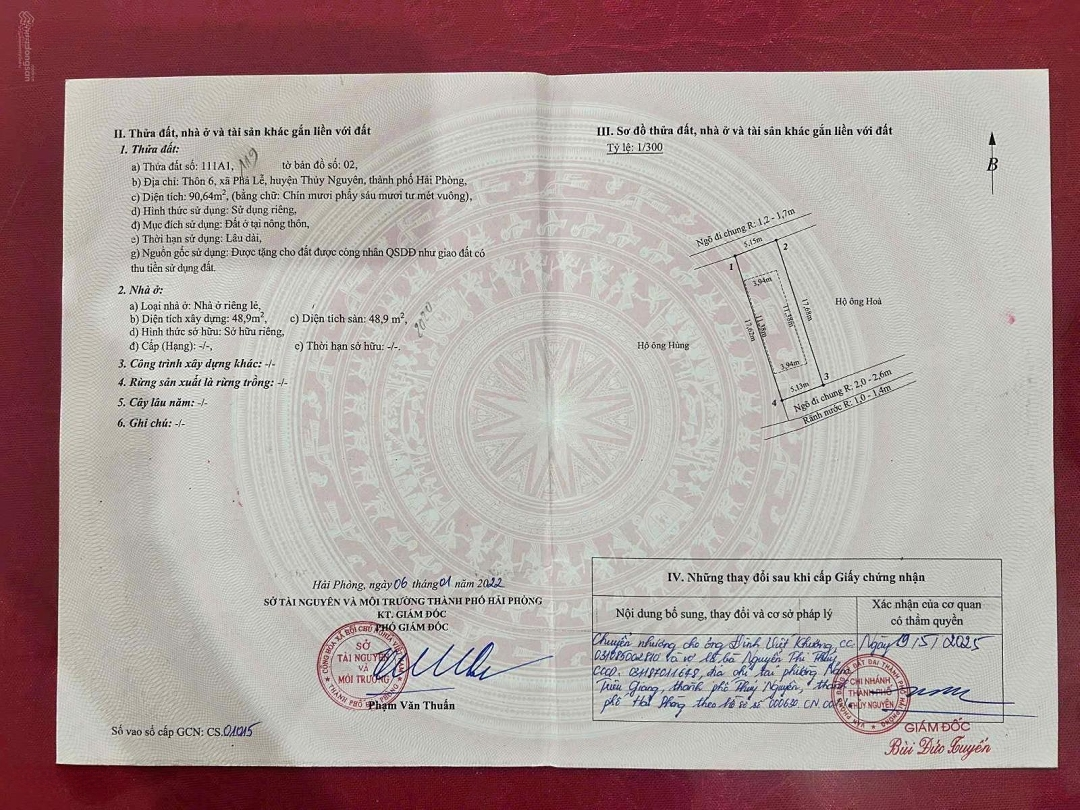 II. Thửa đất, nhà ở và tài sản khác gắn liền với đất
1. Thửa đất:
a) Thửa đất số: 111A1, 119 tờ bản đồ số: 02,
b) Địa chỉ: Thôn 6, xã Phả Lễ, huyện Thủy Nguyên, thành phố Hải Phòng,
c) Diện tích: 90,64m², (bằng chữ: Chín mươi phẩy sáu mươi tư mét vuông),
d) Hình thức sử dụng: Sử dụng riêng,
đ) Mục đích sử dụng: Đất ở tại nông thôn,
e) Thời hạn sử dụng: Lâu dài,
g) Nguồn gốc sử dụng: Được tặng cho đất được công nhân QSDĐ như giao đất có
thu tiền sử dụng đất.
2. Nhà ở:
a) Loại nhà ở: Nhà ở riêng lẻ,
b) Diện tích xây dựng: 48,9m², c) Diện tích sàn: 48,9 m²,
d) Hình thức sở hữu: Sở hữu riêng,
đ) Cấp (Hạng): -/-, e) Thời hạn sở hữu: -/-.
3. Công trình xây dựng khác: -/-
4. Rừng sản xuất là rừng trồng: -/-
5. Cây lâu năm: -/-
6. Ghi chú: -/-
Hải Phòng, ngày 06 tháng 01 năm 2022
SỞ TÀI NGUYÊN VÀ MÔI TRƯỜNG THÀNH PHỐ HẢI PHÒNG
KT. GIÁM ĐỐC
PHÓ GIÁM ĐỐC
SỞ
TÀI NGUYÊN
VÀ
MÔI TRƯỜNG
Phạm Văn Thuấn
Số vào sổ cấp GCN: CS.01015
III. Sơ đồ thửa đất, nhà ở và tài sản khác gắn liền với đất
Tỷ lệ: 1/300
B
Ngõ đi chung R: 1,2 - 1,7m
5,15m
1
2
3,94m
17,62m
11,38m
11,38m
17,68m
Hộ ông Hoà
Hộ ông Hùng
3,94m
5,13m
3
4
Ngõ đi chung R: 2,0 - 2,6m
Rãnh nước R: 1,0 - 1,4m
IV. Những thay đổi sau khi cấp Giấy chứng nhận
Nội dung bổ sung, thay đổi và cơ sở pháp lý
Xác nhận của cơ quan
có thẩm quyền
Chuyển nhượng cho ông Đinh Việt Khương, CC
và vợ là bà Nguyễn Thị Thúy,
CCCD. địa chỉ tại phường Nam
Triệu Giang, thành phố Thủy Nguyên, thành
phố Hải Phòng theo hồ sơ số 000630.CN.
Ngày 19/5/2025
CHI NHÁNH
THÀNH PHỐ
THỦY NGUYÊN
GIÁM ĐỐC
Bùi Đức Tuyến